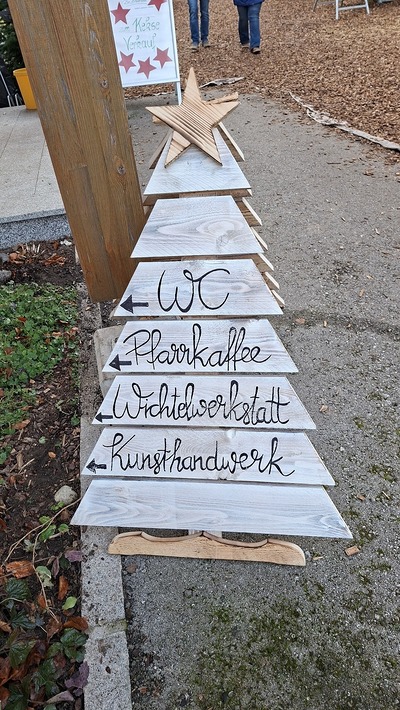 Kekse
Verkauf
WC
Pfarrkaffee
Wichtelwerkstatt
Kunsthandwerk